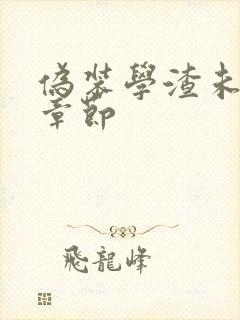 偽裝學渣未
章節
飛龍峰